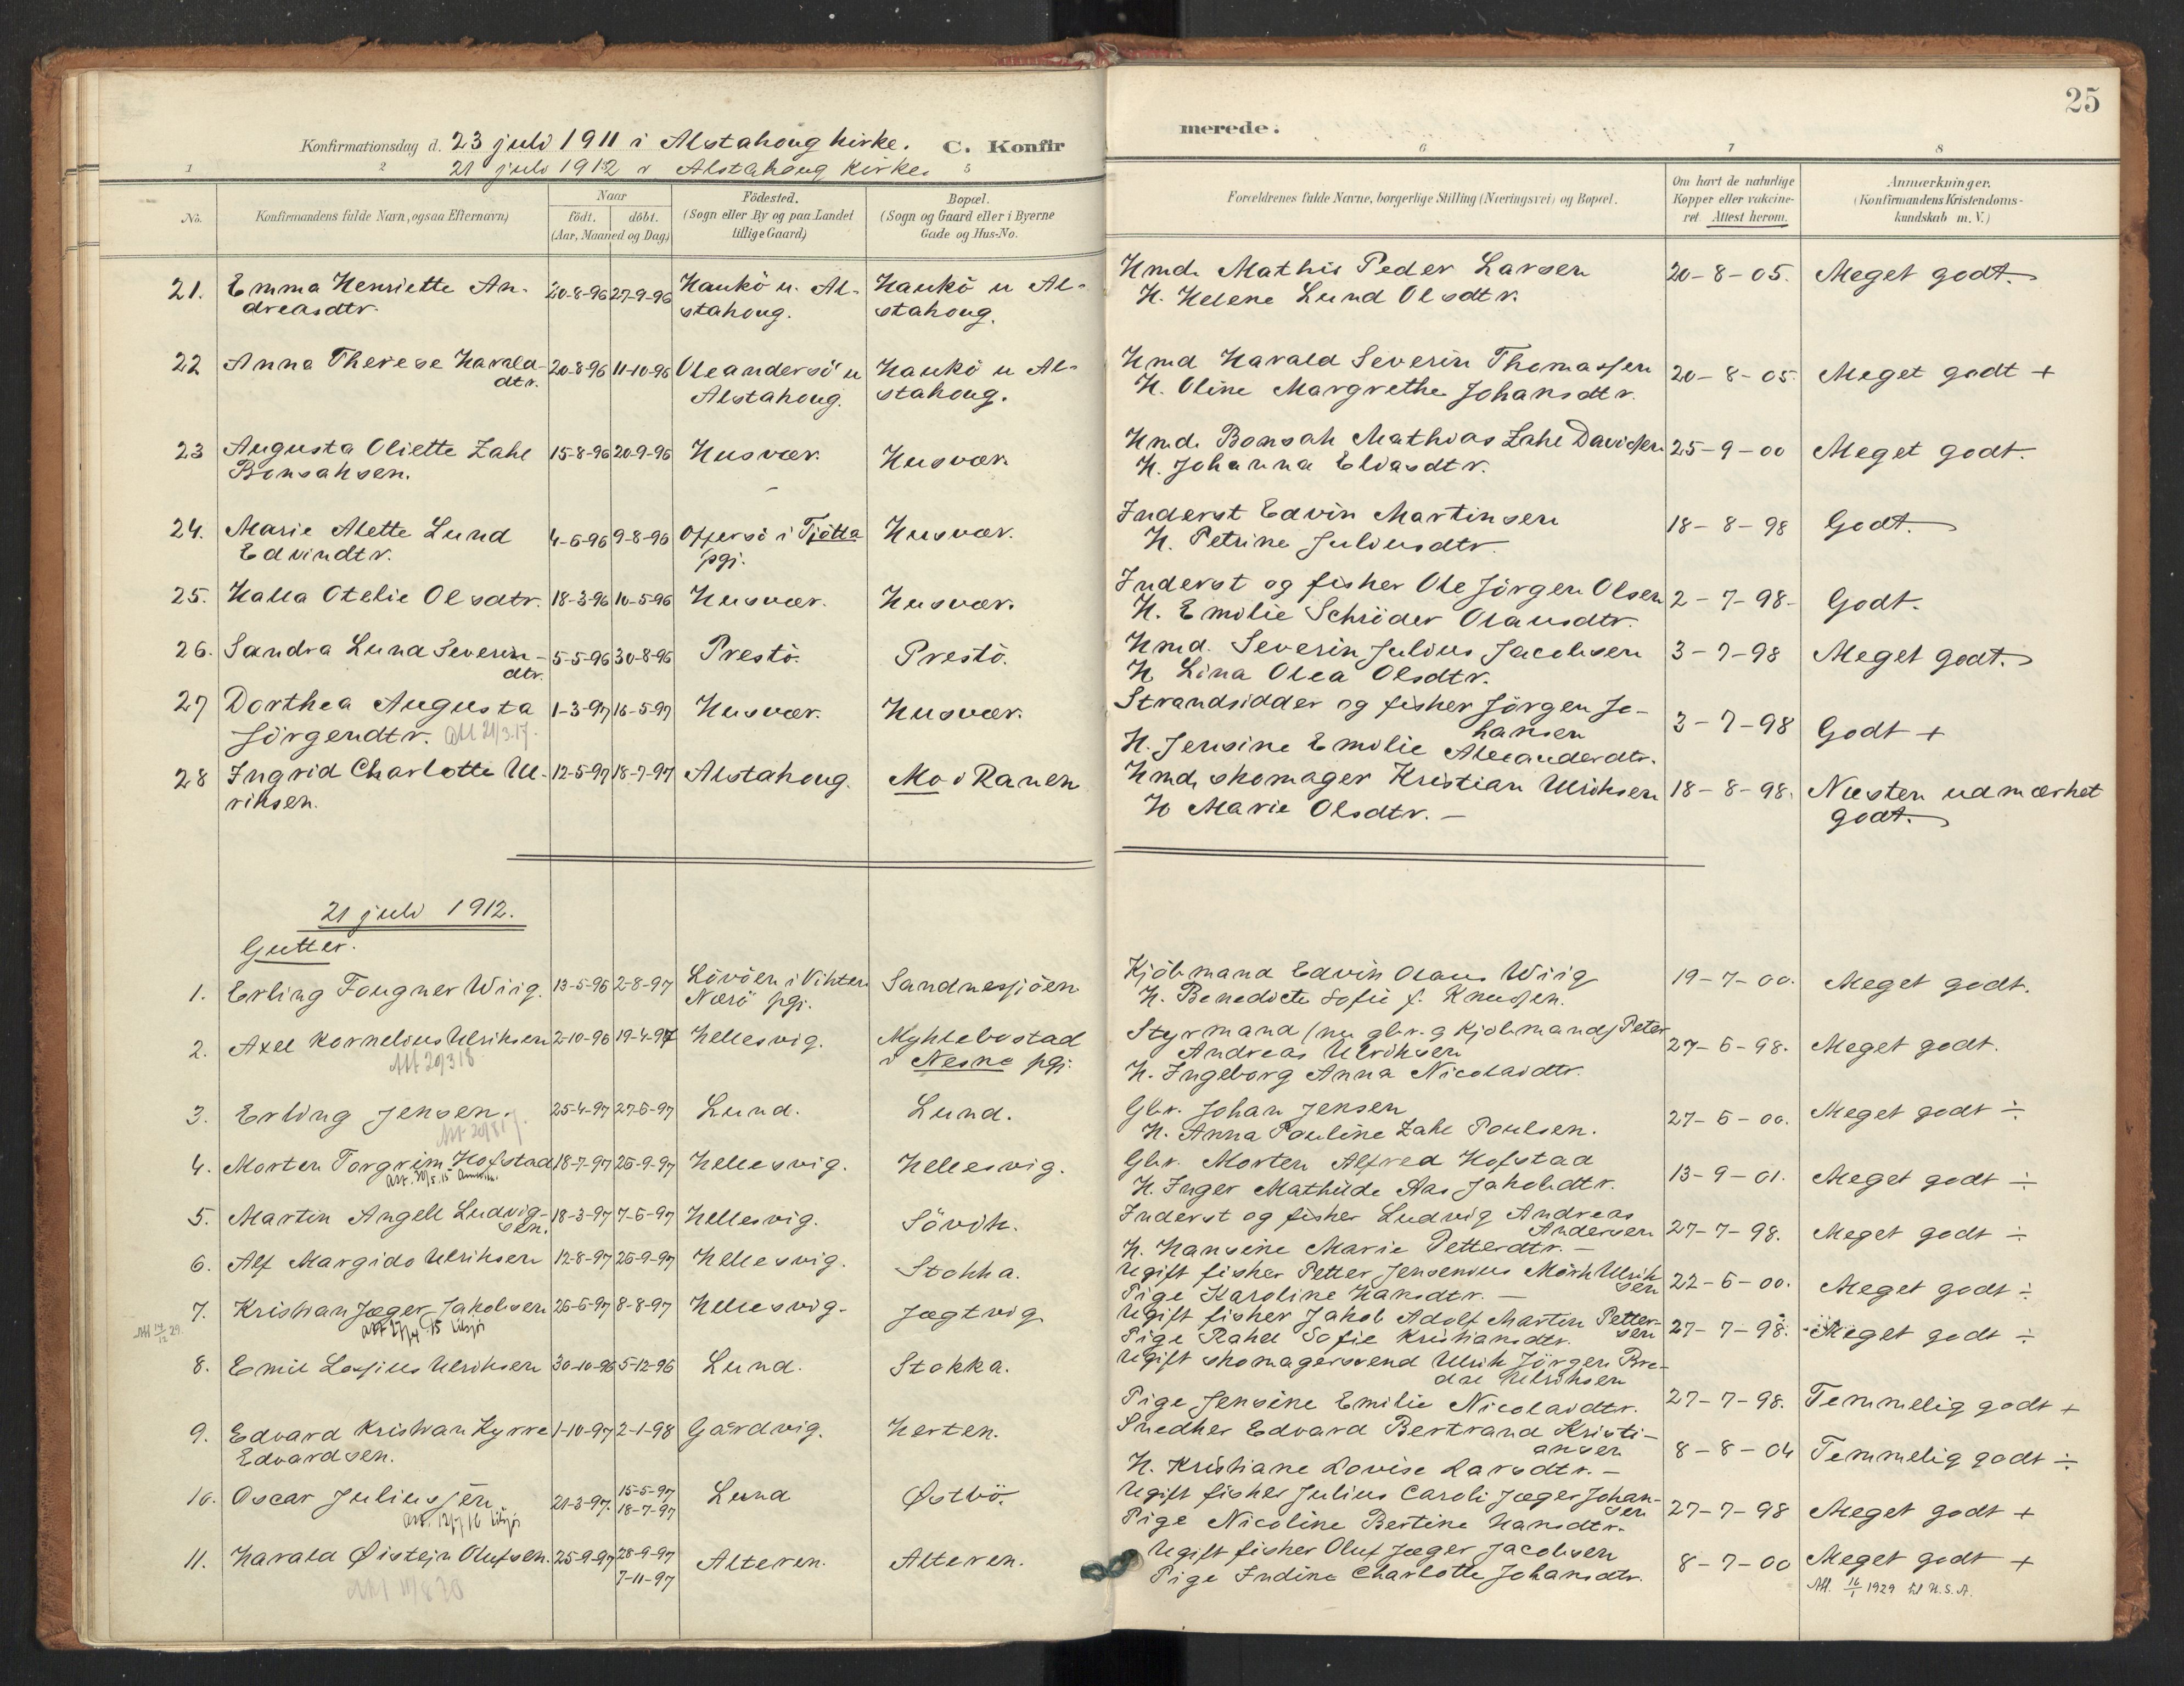 25
Konfirmationsdag d. 23 juli 1911 i Alstahoug kirke. C. Konfirmerede.
21 juli 1912 i Alstahoug kirke.
1 2 5 6 7 8
No. Konfirmandens fulde Navn, ogsaa Efternavn) Naar født. døbt. (Aar, Maaned og Dag) Fødested. (Sogn eller By og paa Landet tillige Gaard) Bopæl. (Sogn og Gaard eller i Byerne Gade og Hus-No. Forældrenes fulde Navne, borgerlige Stilling (Næringsvei) og Bopæl. Om havt de naturlige Kopper eller vakcineret. Attest herom. Anmærkninger. (Konfirmandens Kristendomskundskab m. V.)
21. Emma Henriette An- 20-8-96 27-9-96 Haukö u. Al- Haukö u Al- Hmd. Mathis Peder Larsen 20-8-05. Meget godt.
dreasdtr. stahoug. stahoug. H. Helene Lund Olsdtr.
22 Anna Therese Harald- 20-8-96 11-10-96 Oleandersö u Haukö u Al- Hmd Harald Severin Thomassen 20-8-05. Meget godt +
dtr. Alstahoug. stahoug. H. Oline Margrethe Johansdtr.
23 Augusta Oliette Zahl 15-8-96 20-9-96 Husvær. Husvær. Hmd. Bonsak Mathias Zahl Davidsen 25-9-00 Meget godt.
Bonsaksen. H. Johanna Eliasdtr.
24. Marie Alette Lund 4-6-96 9-8-96 Offersö i Tjötta Husvær. Inderst Edvin Martinsen 18-8-98 Godt.
Edvindtr. pgj. H. Petrine Juliusdtr.
25. Halla Otelie Olsdtr. 18-3-96 10-5-96 Husvær. Husvær. Inderst og fisker Ole Jörgen Olsen 2-7-98- Godt.
H. Emilie Schröder Olausdtr.
26. Sandra Luna Severin- 5-5-96 30-8-96 Prestö. Prestö. Hmd. Severin Julius Jacobsen 3-7-98 Meget godt.
dtr. H Lina Olea Olsdtr.
27 Dorthea Augusta 1-3-97 16-5-97 Husvær. Husvær. Strandsidder og fisker Jörgen Jo- 3-7-98 Godt +
Jörgendtr. Att 21/3.17. hansen
H. Jensine Emilie Alexanderdtr.
28 Ingrid Charlotte Ul- 12-5-97 18-7-97 Alstahoug. Mo i Ranen Hmd, skomager Kristian Ulriksen 18-8-98. Næsten udmærket
riksen. H Marie Olsdtr. - godt.
21 juli 1912.
Gutter.
1. Erling Fougner Wiig. 13-5-96 2-8-97 Lövöen i Vikten Sandnessjöen Kjöbmand Edvin Olaus Wiig 19-7-00. Meget godt.
Nærö pgj. H. Benedicte Sofie f. Knudsen.
2. Axel Kornelius Ulriksen 2-10-96 19-4-97 Hellesvig. Myklebostad Styrmand (nu gbr. og Kjöbmand) Peter 27-6-98. Meget godt.
Att 29318 i Nesne pgj. Andreas Ulriksen
H. Ingeborg Anna Nicolaidtr.
3. Erling Jensen. 25-4-97 27-6-97 Lund. Lund. Gbr. Johan Jensen 27-6-00. Meget godt ÷
H. Anna Pouline Zahl Poulsen.
4. Morten Torgrim Hofstad 18-7-97 26-9-97 Hellesvig. Hellesvig. Gbr. Morten Alfred Hofstad 13-9-01. Meget godt ÷
att. 30/5.15 H. Inger Mathilde Aas Jakobdtr.
5. Martin Angell Ludvig- 18-3-97 7-6-97 Hellesvig. Sövik. Inderst og fisker Ludvig Andreas 27-7-98. Meget godt ÷
sen. Andersen
H. Hansine Marie Petterdtr. -
6. Alf Margido Ulriksen 12-8-97 26-9-97 Hellesvig. Stokka. Ugift fisker Petter Jensenius Mörk Ulrik- 22-6-00. Meget godt ÷
sen
Pige Karoline Hansdtr. -
7. Kristian Jæger Jakobsen 26-6-97 8-8-97 Hellesvig. Jægtvig Ugift fisker Jakob Adolf Martin Petter- 27-7-98. Meget godt ÷
Att 14/12 29. att 27/4 15 sen
Pige Rahel Sofie Kristiansdtr.
8. Emil Losius Ulriksen 30-10-96 5-12-96 Lund. Stokka. Ugift skomagersvend Ulrik Jörgen Bre-
dal Ulriksen
Pige Jensine Emilie Nicolaidtr. 27-7-98. Temmelig godt +
9. Edvard Kristian Kyrre 1-10-97 2-1-98 Gårdvig. Kerten. Snedker Edvard Bertrand Kristi- 8-8-04 Temmelig godt ÷
Edvardsen. ansen
H. Kristiane Lovise Larsdtr. -
10. Oscar Juliussen 21-3-97. 15-5-97 Lund Østbö. Ugift fisker Julius Caroli Jæger Johan- 27-7-98 Meget godt +
att. 12/7 16 18-7-97 sen
Pige Nicoline Bertine Hansdtr.
11. Harald Øistejn Olufsen. 25-9-97 28-9-97 Alteren. Alteren. Ugift fisker Oluf Jæger Jacobsen 8-7-00 Meget godt +
Att 11/8 20 7-11-97 Pige Indine Charlotte Johansdtr. Att. 16/1 1929 til U.S.A.